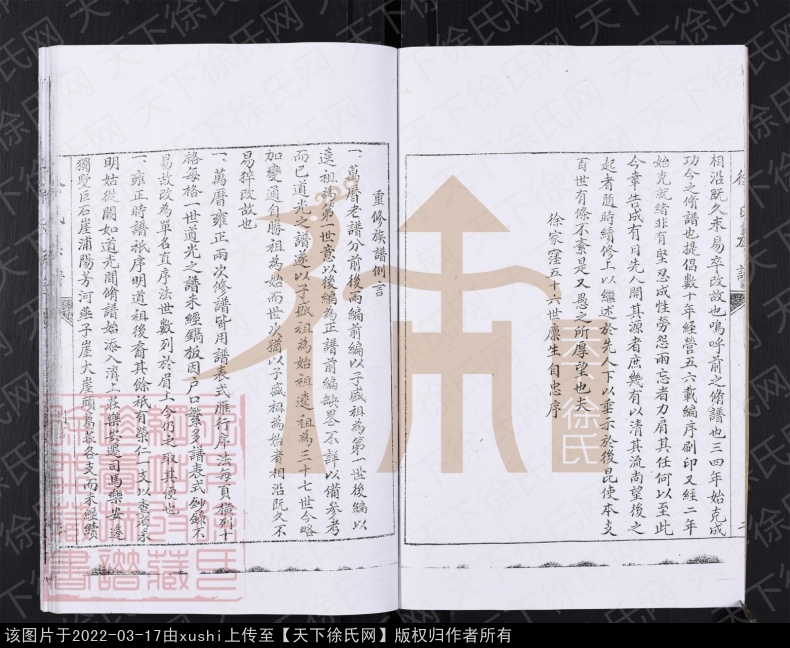 相沿既久未易卒改故也嗚呼前之脩譜也三四年始克成
功今之脩譜也提倡數十年經營五六載編序刷印又經二年
始克就緒非有堅忍成性勞怨兩忘者力肩其任何以至此
今幸告成有日先人開其源者庶幾有以清其流尚望後之
起者題時續修上以繼述於先人下以垂示於後昆使本支
百世有條不紊是又愚之所厚望也夫
徐家窪五十六世廩生自忠序
重修族譜例言
一、萬曆老譜分前後兩編前編以子盛祖為第一世後編以
遠祖為第一世意以後編為正譜前編缺畧不詳以備參考
而已道光之譜遂以子盛祖為始祖遠祖為三十七世今略
加變通自勝祖為始而世次猶以子盛祖為始者相沿既久不
易猝改故也
一、萬曆雍正兩次修譜皆用譜表式雁行序法每頁橫列十
格每格一世道光之譜未經鍋板因户口繁多譜表式鈔錄不
易故改為單名直序法世數列於眉上今仍之取其便也
一、雍正時譜祇序明道祖後裔其餘祇有崇仁一支以
明始後闕如道光間脩譜始添入濟上
獨墅巨石崖浦陽芳河燕子崖大崖頭萬各支而未經續
天下徐氏
该图片于2022-03-17由xushi上传至【天下徐氏网】版权归作者所有